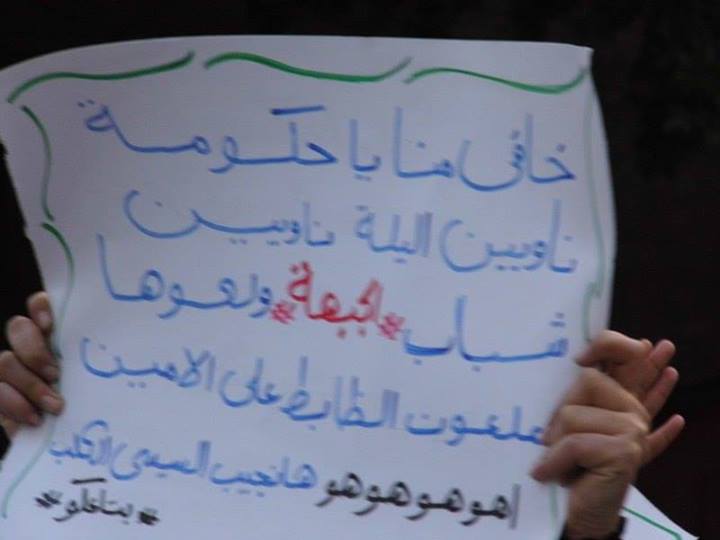 خافى منا يا حكومة
ناويين اليلة ناويين
شباب *الجبهة* ولعوها
ملعون الظابط على الامين
اهو هو هو هو هانجيب السيسى الكلب
* بتاعكو *